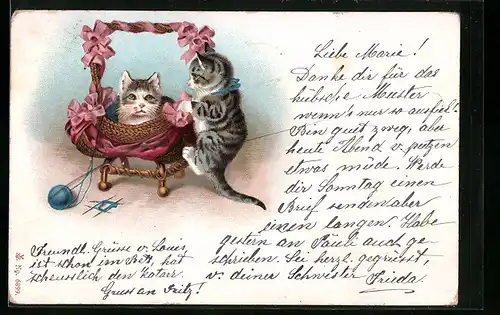 Liebe Marie!
Danke dir für das
hübsche Muster
wenn's nur so ausfiel!
Bin guet zweg, aber
heute Abend v. putzen
etwas müde. Werde
dir Sonntag einen
Brief senden aber
einen langen. Habe
gestern an Pauli auch ge
schrieben. Sei herzl. gegrüsst
v. deiner Schwester Frieda.
Freundl. Grüsse v. Louis,
ist schon im Bett, hat
scheusslich den Katarr.
Gruss an Fritz!
No. 6899.